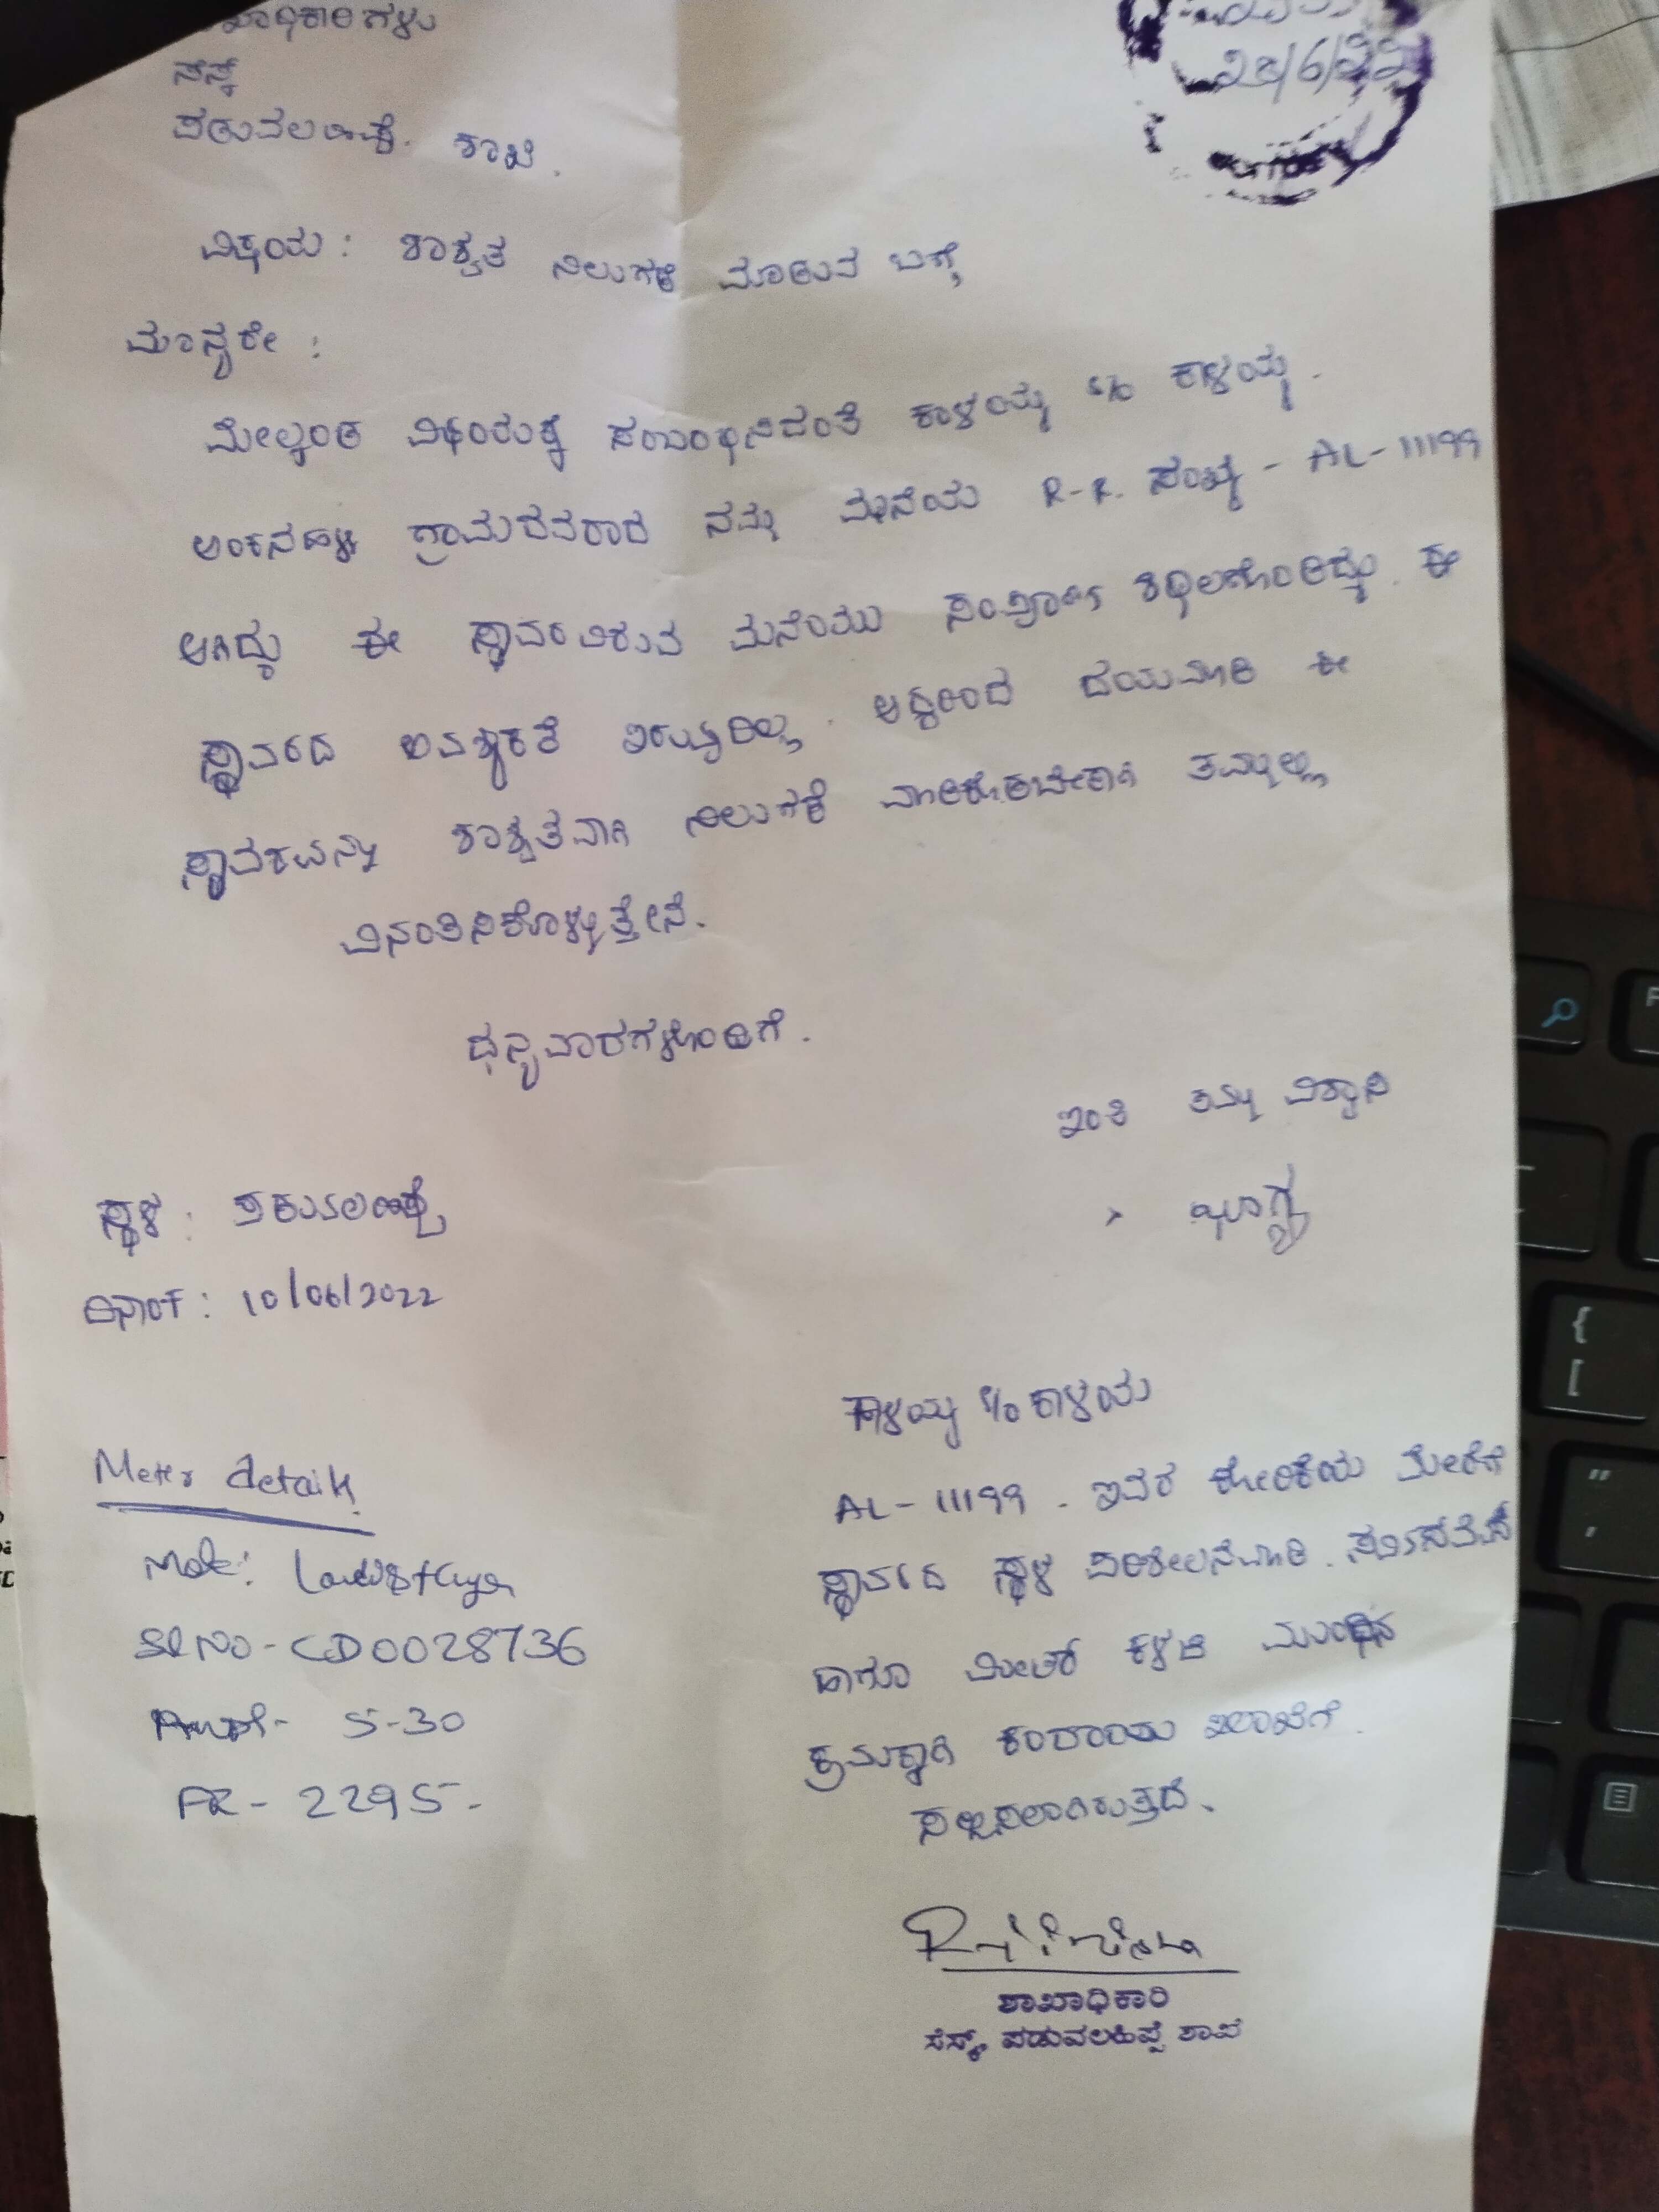 ಶಾಖಾಧಿಕಾರಿಗಳು
ಸೆಸ್ಕ್
ಪಡುವಲಹಿಪ್ಪೆ. ಶಾಖೆ.
28/6/22
ವಿಷಯ: ಶಾಶ್ವತ ನಿಲುಗಡೆ ಮಾಡುವ ಬಗ್ಗೆ
ಮಾನ್ಯರೇ:
ಮೇಲ್ಕಂಡ ವಿಷಯಕ್ಕೆ ಸಂಬಂಧಿಸಿದಂತೆ ಕಾಳಯ್ಯ S/o ಕಾಳಯ್ಯ.
ಅಂಕನಹಳ್ಳಿ ಗ್ರಾಮದವರಾದ ನಮ್ಮ ಮನೆಯ R-R. ಸಂಖ್ಯೆ - AL-11199
ಆಗಿದ್ದು ಈ ಸ್ಥಾವರವಿರುವ ಮನೆಯು ಸಂಪೂರ್ಣ ಶಿಥಿಲಗೊಂಡಿದ್ದು. ಈ
ಸ್ಥಾವರದ ಅವಶ್ಯಕತೆ ಇರುವುದಿಲ್ಲ. ಆದ್ದರಿಂದ ದಯಮಾಡಿ ಈ
ಸ್ಥಾವರವನ್ನು ಶಾಶ್ವತವಾಗಿ ನಿಲುಗಡೆ ಮಾಡಿಕೊಡಬೇಕಾಗಿ ತಮ್ಮಲ್ಲಿ
ವಿನಂತಿಸಿಕೊಳ್ಳುತ್ತೇನೆ.
ಧನ್ಯವಾದಗಳೊಂದಿಗೆ.
ಇಂತಿ ತಮ್ಮ ವಿಶ್ವಾಸಿ
ಸ್ಥಳ: ಪಡುವಲಹಿಪ್ಪೆ
ದಿನಾಂಕ: 10/06/2022
ಕಾಳಯ್ಯ S/o ಕಾಳಯ
AL-11199. ಇವರ ಕೋರಿಕೆಯ ಮೇರೆಗೆ
ಸ್ಥಾವರದ ಸ್ಥಳ ಪರಿಶೀಲನೆಮಾಡಿ.
ಹಾಗೂ ಮೀಟರ್ ಕಳಚಿ ಮುಂದಿನ
ಕ್ರಮಕ್ಕಾಗಿ ಕಂದಾಯ ಇಲಾಖೆಗೆ.
ಸಲ್ಲಿಸಲಾಗಿರುತ್ತದೆ.
Meter details
Make: Landis+Gyr
Sl No - CD0028736
Amps - 5-30
FR - 2295-
ಶಾಖಾಧಿಕಾರಿ
ಸೆಸ್ಕ್, ಪಡುವಲಹಿಪ್ಪೆ ಶಾಖೆ